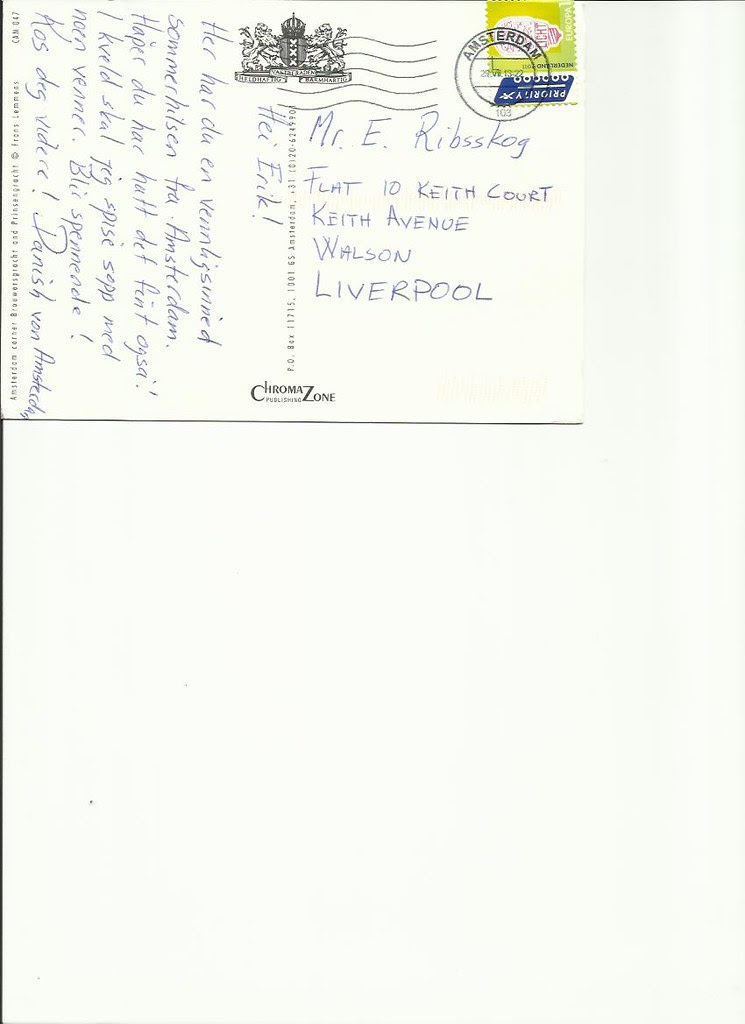 Hei Erik!
Her har du en vennligsinned
Sommerhilsen fra Amsterdam.
Håper du har hatt det fint også!
I kveld skal jeg spise sopp med
noen venner. Blir spennende!
Kos deg videre!
Mr. E. Ribsskog
FLAT 10 KEITH COURT
KEITH AVENUE
WALSON
LIVERPOOL
AMSTERDAM
103
NEDERLAND 2011
EUROPA
PRIORITY
HELDHAFTIG VASTBERADEN BARMHARTIG
P.O. Box 11715, 1001 GS Amsterdam, +31 (0)20-6249901
CHROMAZONE
PUBLISHING
Amsterdam corner Brouwersgracht and Prinsengracht © Frans Lemmens CAN 047